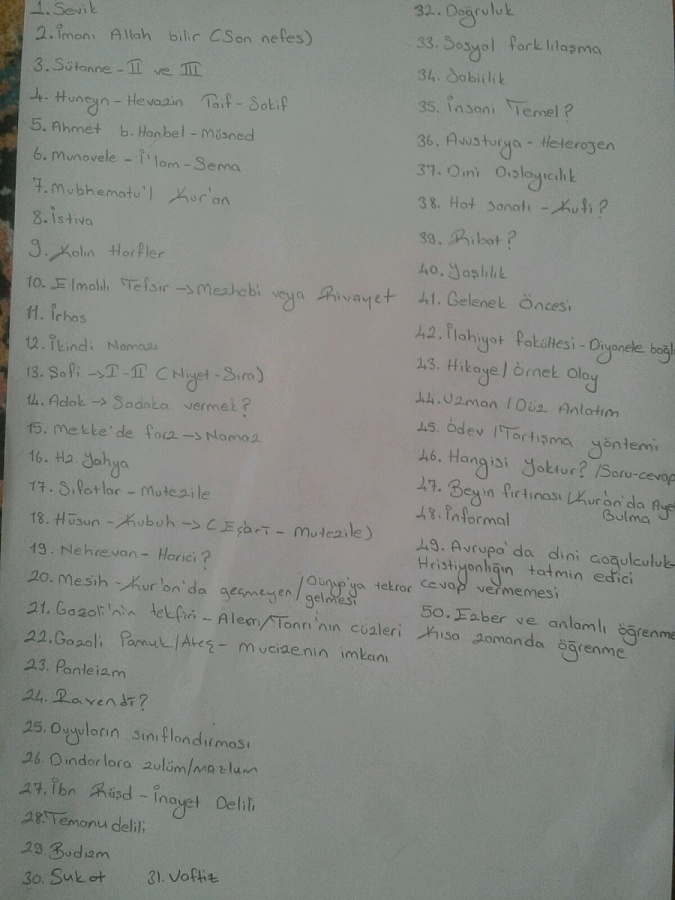 1. Sevik
2. İmanı Allah bilir (Son nefes)
3. Sütanne - II ve III
4. Huneyn - Hevazin Taif - Sakif
5. Ahmet b. Hanbel - Müsned
6. Munavele - İ'lam - Sema
7. Mubhematu'l Kur'an
8. İstiva
9. Kalın Harfler
10. Elmalılı Tefsir → Mezhebi veya Rivayet
11. İrhas
12. İkindi Namazı
13. Şafi → I - II (Niyet - Sıra)
14. Adak → Sadaka vermek?
15. Mekke'de farz → Namaz
16. Hz. Yahya
17. Sıfatlar - Mutezile
18. Hüsun - Kubuh → (Eşari - Mutezile)
19. Nehrevan - Harici?
20. Mesih - Kur'an'da geçmeyen / Dünya'ya tekrar gelmesi
21. Gazali'nin tekfiri - Alem/Tanrı'nın cüzleri
22. Gazali Pamuk/Ateş - mucizenin imkanı
23. Panteizm
24. Ravendi?
25. Duyuların sınıflandırması
26. Dindarlara zulüm/MAZLUM
27. İbn Rüşd - İnayet Delili
28. Temanu delili
29. Budizm
30. Sukot 31. Vaftiz
32. Doğruluk
33. Sosyal farklılaşma
34. Sabiilik
35. İnsani Temel?
36. Avusturya - Heterojen
37. Dini Dışlayıcılık
38. Hat sanatı - Kufi?
39. Ribat?
40. Yaşlılık
41. Gelenek Öncesi
42. İlahiyat fakültesi - Diyanete bağlı
43. Hikaye / örnek Olay
44. Uzman / Düz Anlatım
45. Ödev / Tartışma yöntemi
46. Hangisi yoktur? / Soru-cevap
47. Beyin fırtınası / Kur'an'da Aye
Bulma
48. İnformal
49. Avrupa'da dini çoğulculuk-
Hristiyanlığın tatmin edici
cevap vermemesi
50. Ezber ve anlamlı öğrenme
Kısa zamanda öğrenme